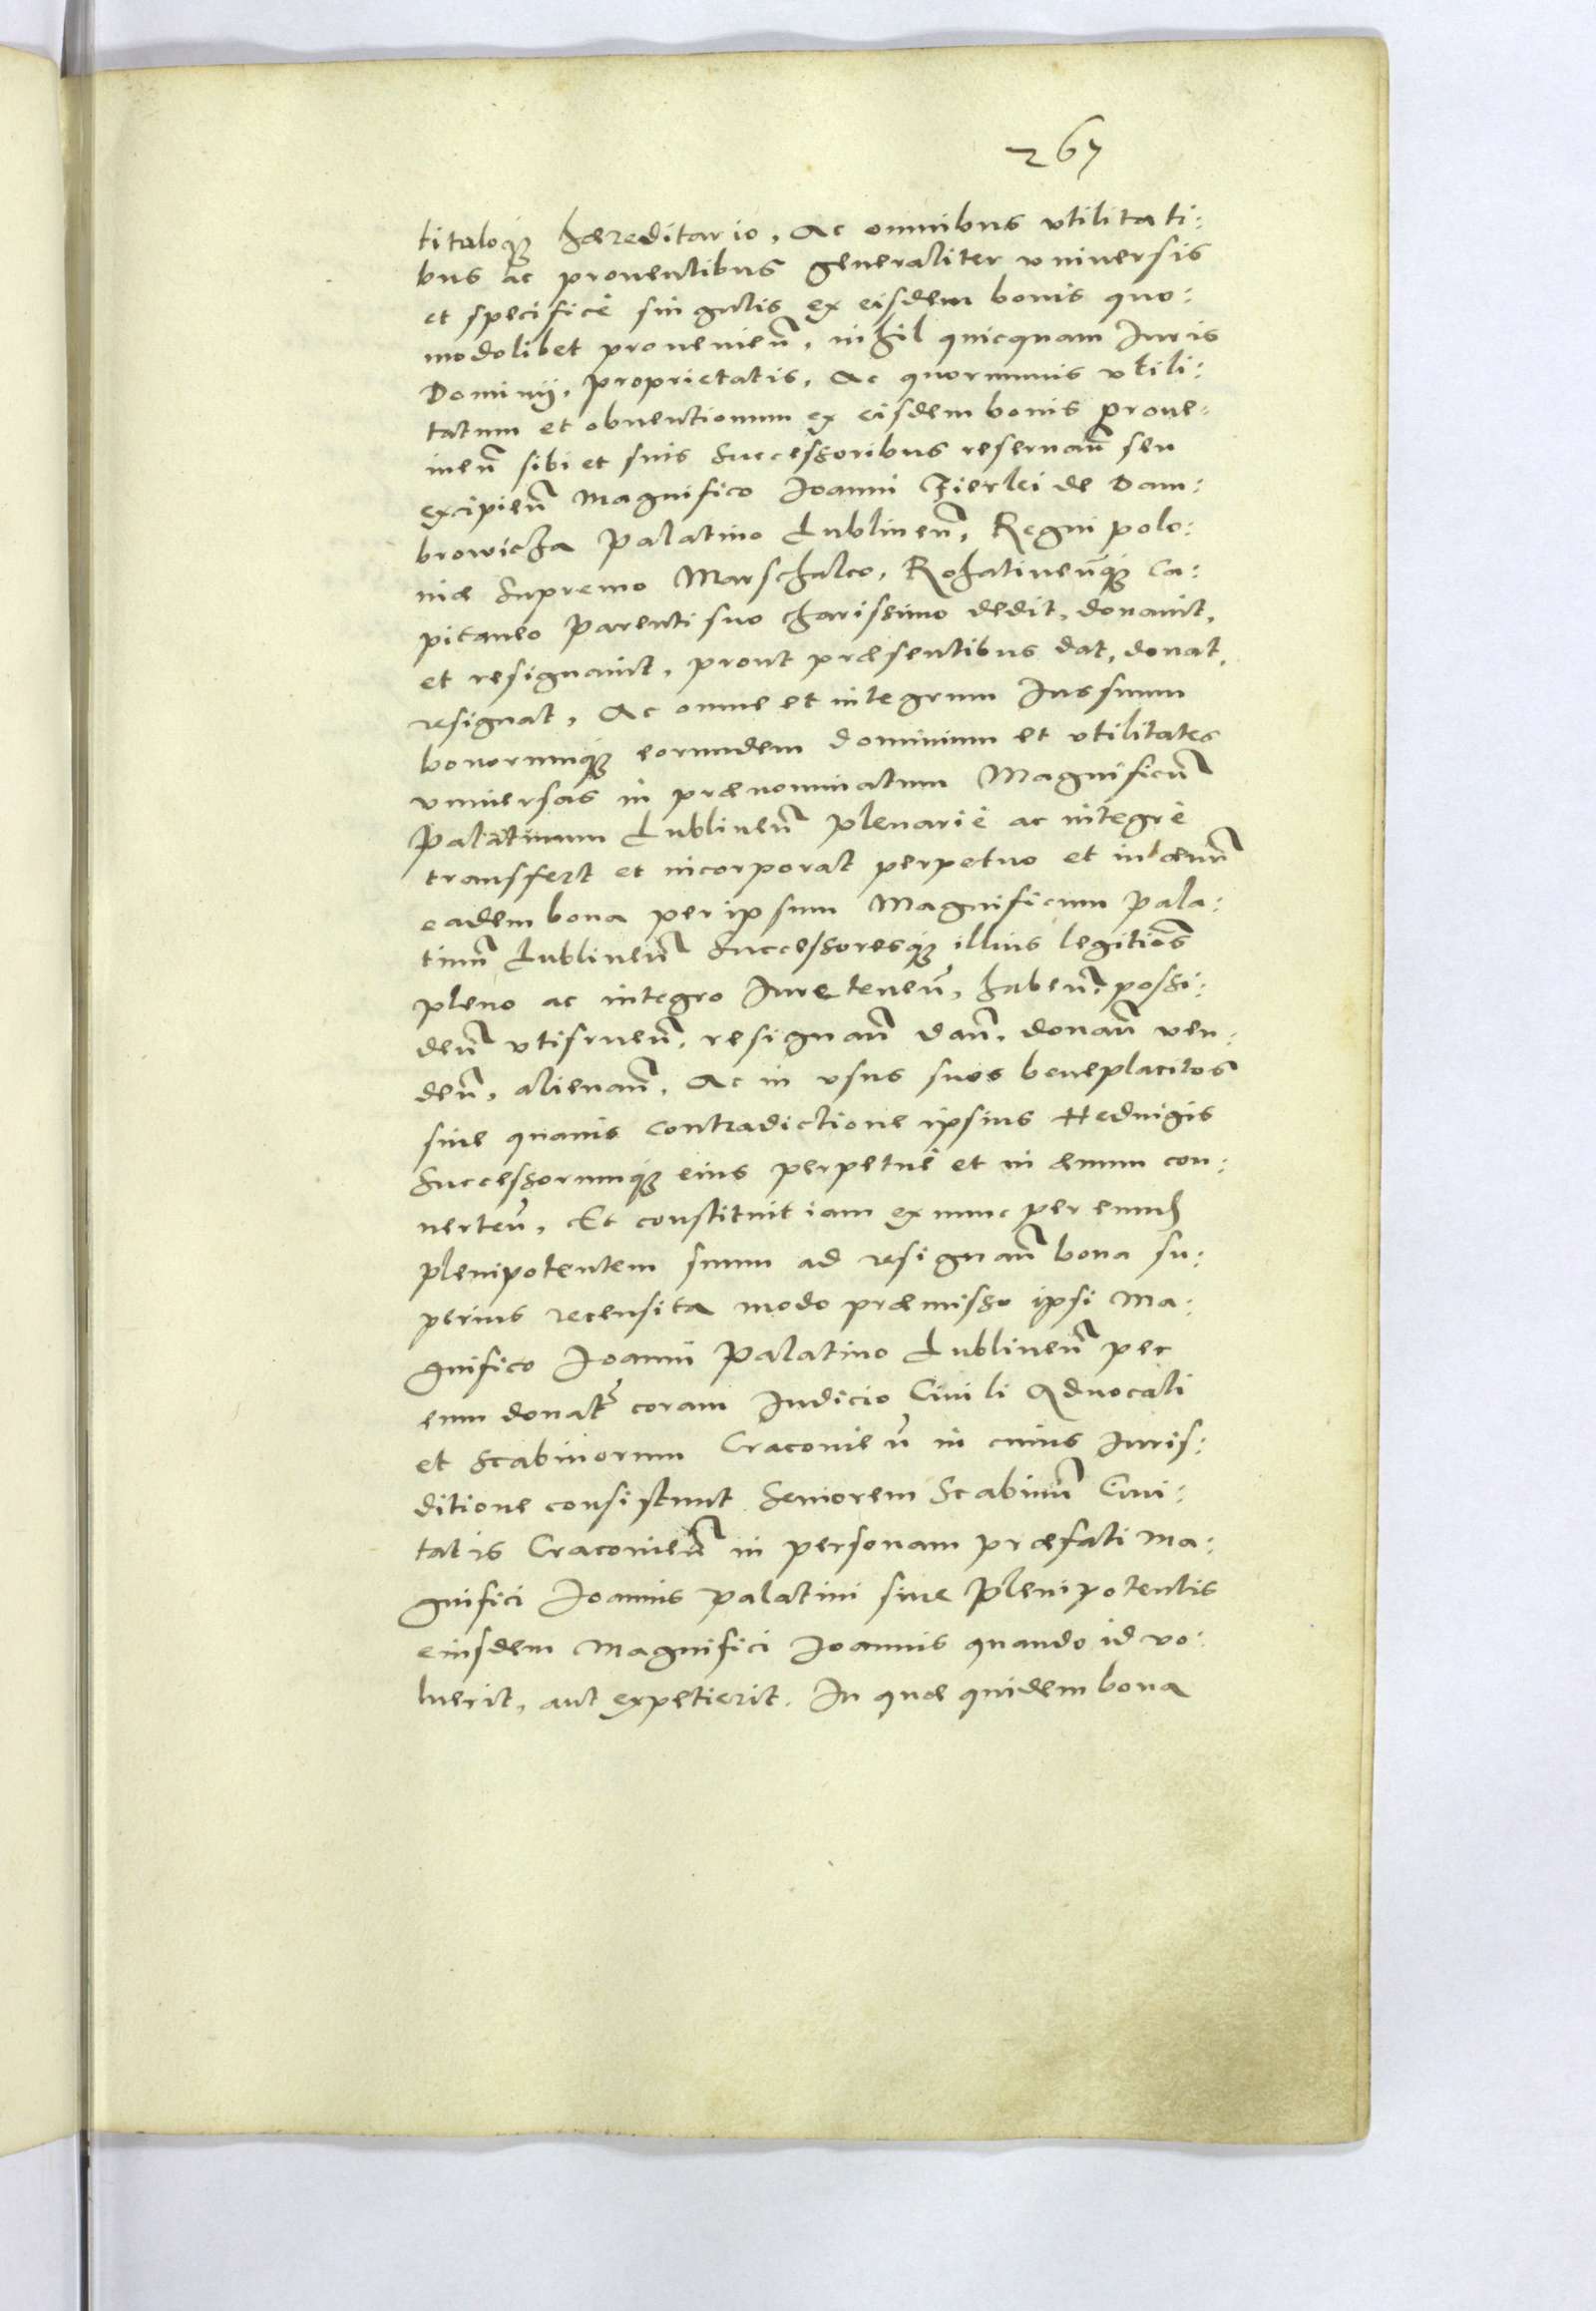 267
tituloq; hæreditario, Ac omnibus vtilitati:
bus ac prouentibus generaliter vniuersis
et specificè singulis ex eisdem bonis quo:
modolibet prouenieñ, nihil quicquam Iuris
Dominij, proprietatis, Ac quorumuis vtili:
tatum et obuentionum ex eisdem bonis proue:
nieñ sibi et suis Successoribus reseruañ seu
excipieñ Magnifico Ioanni Fierlei de Dam:
browicza Palatino Lublineñ, Regni Polo:
niæ Supremo Marschalco, Rohatineñq; Ca:
pitaneo Parenti suo charissimo dedit, donauit,
et resignauit, prout præsentibus dat, donat,
resignat, Ac omne et integrum Ius suum
bonorumq; eorundem dominium et vtilitates
vniuersas in prænominatum Magnificũ
Palatinum Lublineñ plenariè ac integrè
transfert et incorporat perpetuo et in æuũ
eadem bona per ipsum Magnificum Pala:
tinũ Lublineñ Successoresq; illius legitiõs
pleno ac integro Iure teneñ, habeñ, possi:
deñ vtifrueñ, resignañ dañ, donañ ven:
deñ, alienañ, Ac in vsus suos beneplacitos
siue quauis contradictione ipsius Heduigis
Successorumq; eius perpetuè et in æuum con:
uerteñ, Et constituit iam ex nunc per eund
plenipotentem suum ad resignañ bona su:
perius recensita modo præmisso ipsi Ma:
gnifico Ioanni Palatino Lublineñ per
eum donat coram Iudicio Ciuili Aduocati
et Scabinorum Cracouieñ in cuius Iuris:
ditione consistunt Seniorem Scabinũ Ciui:
tatis Cracouieñ in personam præfati Ma:
gnifici Ioannis Palatini siue Plenipotentis
eiusdem Magnifici Ioannis quando id vo:
luerit, aut expetierit. In quæ quidem bona